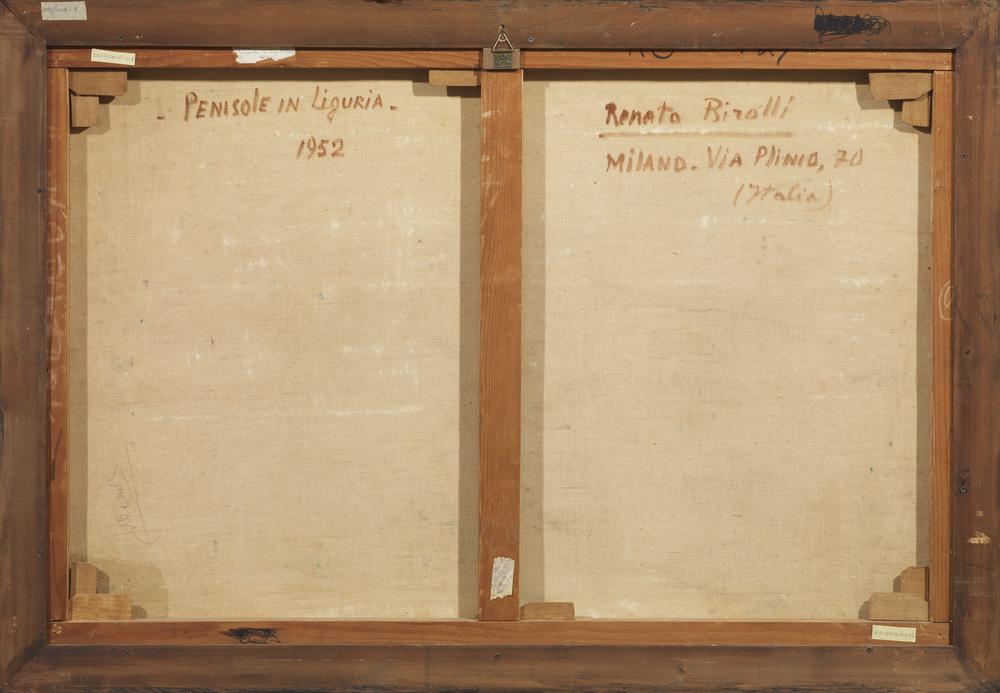 - PENISOLE IN LIGURIA -
1952
Renato Birolli
MILANO. VIA PLINIO, 70
(Italia)